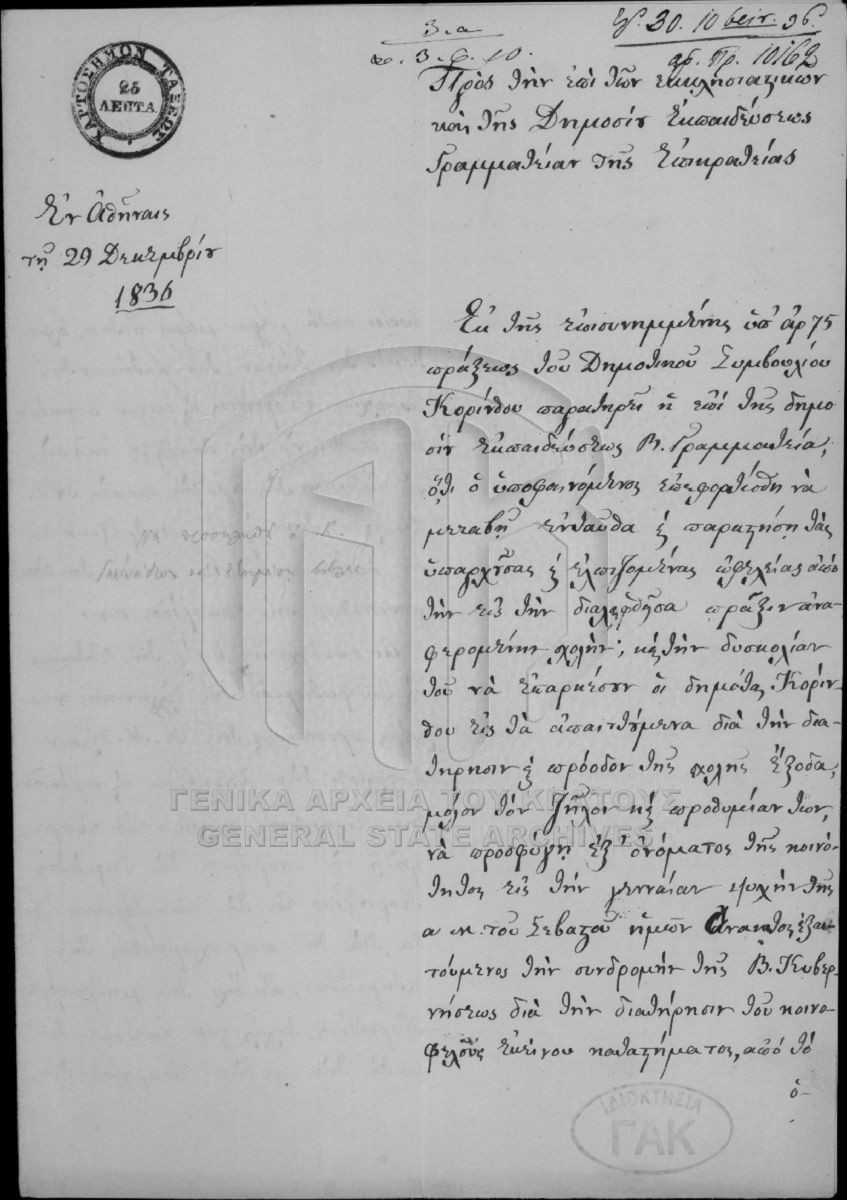 3.α
φ. 3. 6. 10.
30. 10βρίου. 36.
αρ. Πρ. 10162
ΧΑΡΤΟΣΗΜΟΝ ΤΑΞΕΩΣ
25
ΛΕΠΤΑ
Πρὸς τὴν ἐπὶ τῶν ἐκκλησιαστικῶν
καὶ τῆς Δημοσίου Ἐκπαιδεύσεως
Γραμματείαν τῆς Ἐπικρατείας
Ἐν Ἀθήναις
τῇ 29 Δεκεμβρίου
1836
Ἐκ τῆς ἐπισυνημμένης ὑπ' ἀρ 75
πράξεως τοῦ Δημοτικοῦ Συμβουλίου
Κορίνθου παρατηρεῖ ἡ ἐπὶ τῆς δημο
σίου ἐκπαιδεύσεως Β. Γραμματεία,
ὅτι ὁ ὑποφαινόμενος ἐπεφορτίσθη νὰ
μεταβῇ ἐνταῦθα & παραστήσῃ τὰς
ὑπαρχούσας & ἐλπιζομένας ὠφελείας ἀπὸ
τὴν εἰς τὴν διαληφθεῖσα πρᾶξιν ἀνα-
φερομένην σχολὴν; καὶ τὴν δυσκολίαν
τοῦ νὰ ἐπαρκέσουν οἱ δημόται Κορίν-
θου εἰς τὰ ἀπαιτούμενα διὰ τὴν δια-
τήρησιν & πρόοδον τῆς σχολῆς ἔξοδα,
μόλον τὸν ζῆλον καὶ προθυμίαν των,
νὰ προσφύγῃ ἐξ ὀνόματος τῆς κοινό-
τητος εἰς τὴν γενναίαν ψυχὴν τῆς
α. μ. τοῦ Σεβαστοῦ ἡμῶν Ἄνακτος, ἐξαι-
τούμενος τὴν συνδρομὴν τῆς Β. Κυβερ-
νήσεως διὰ τὴν διατήρησιν τοῦ κοινο-
φελοῦς ἐκείνου καταστήματος, ἀπὸ τὸ
ὁ-
ΓΕΝΙΚΑ ΑΡΧΕΙΑ ΤΟΥ ΚΡΑΤΟΥΣ
GENERAL STATE ARCHIVES
ΙΔΙΟΚΤΗΣΙΑ
ΓΑΚ